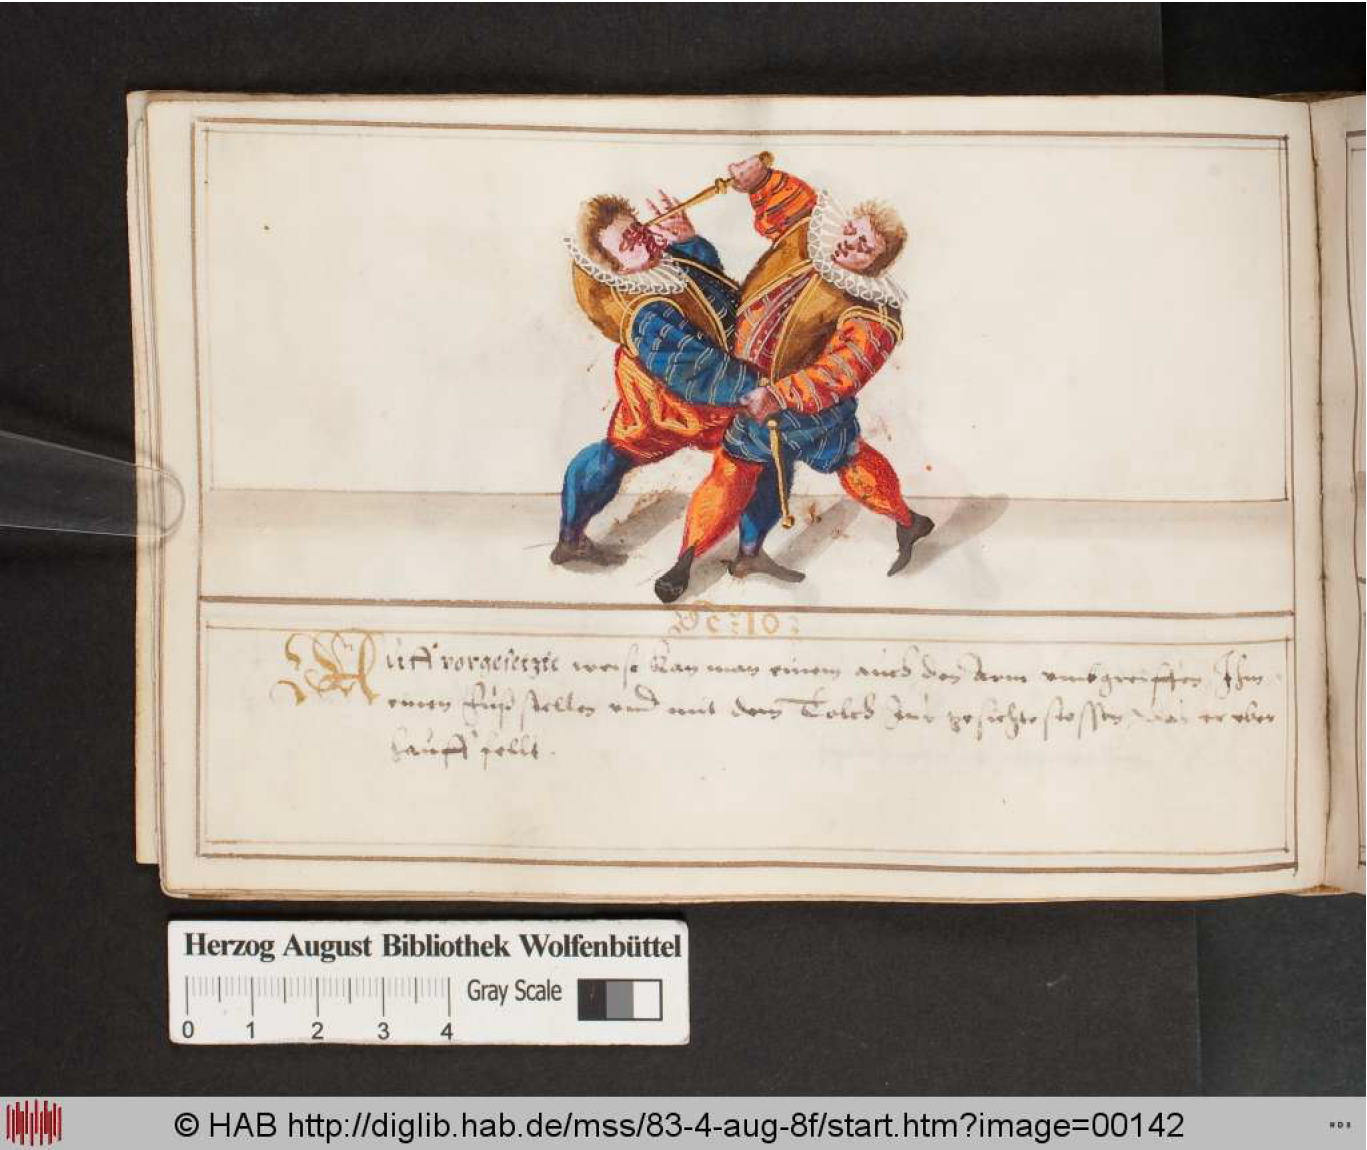 Auff vorgesetzte weise kan man einem auch den Arm umbgreiffen Ihm
einen fuß stellen und mit dem Tolch zur gesichte stossen, das er uber
hauff fellt.
Herzog August Bibliothek Wolfenbüttel
Gray Scale
0 1 2 3 4
© HAB http://diglib.hab.de/mss/83-4-aug-8f/start.htm?image=00142